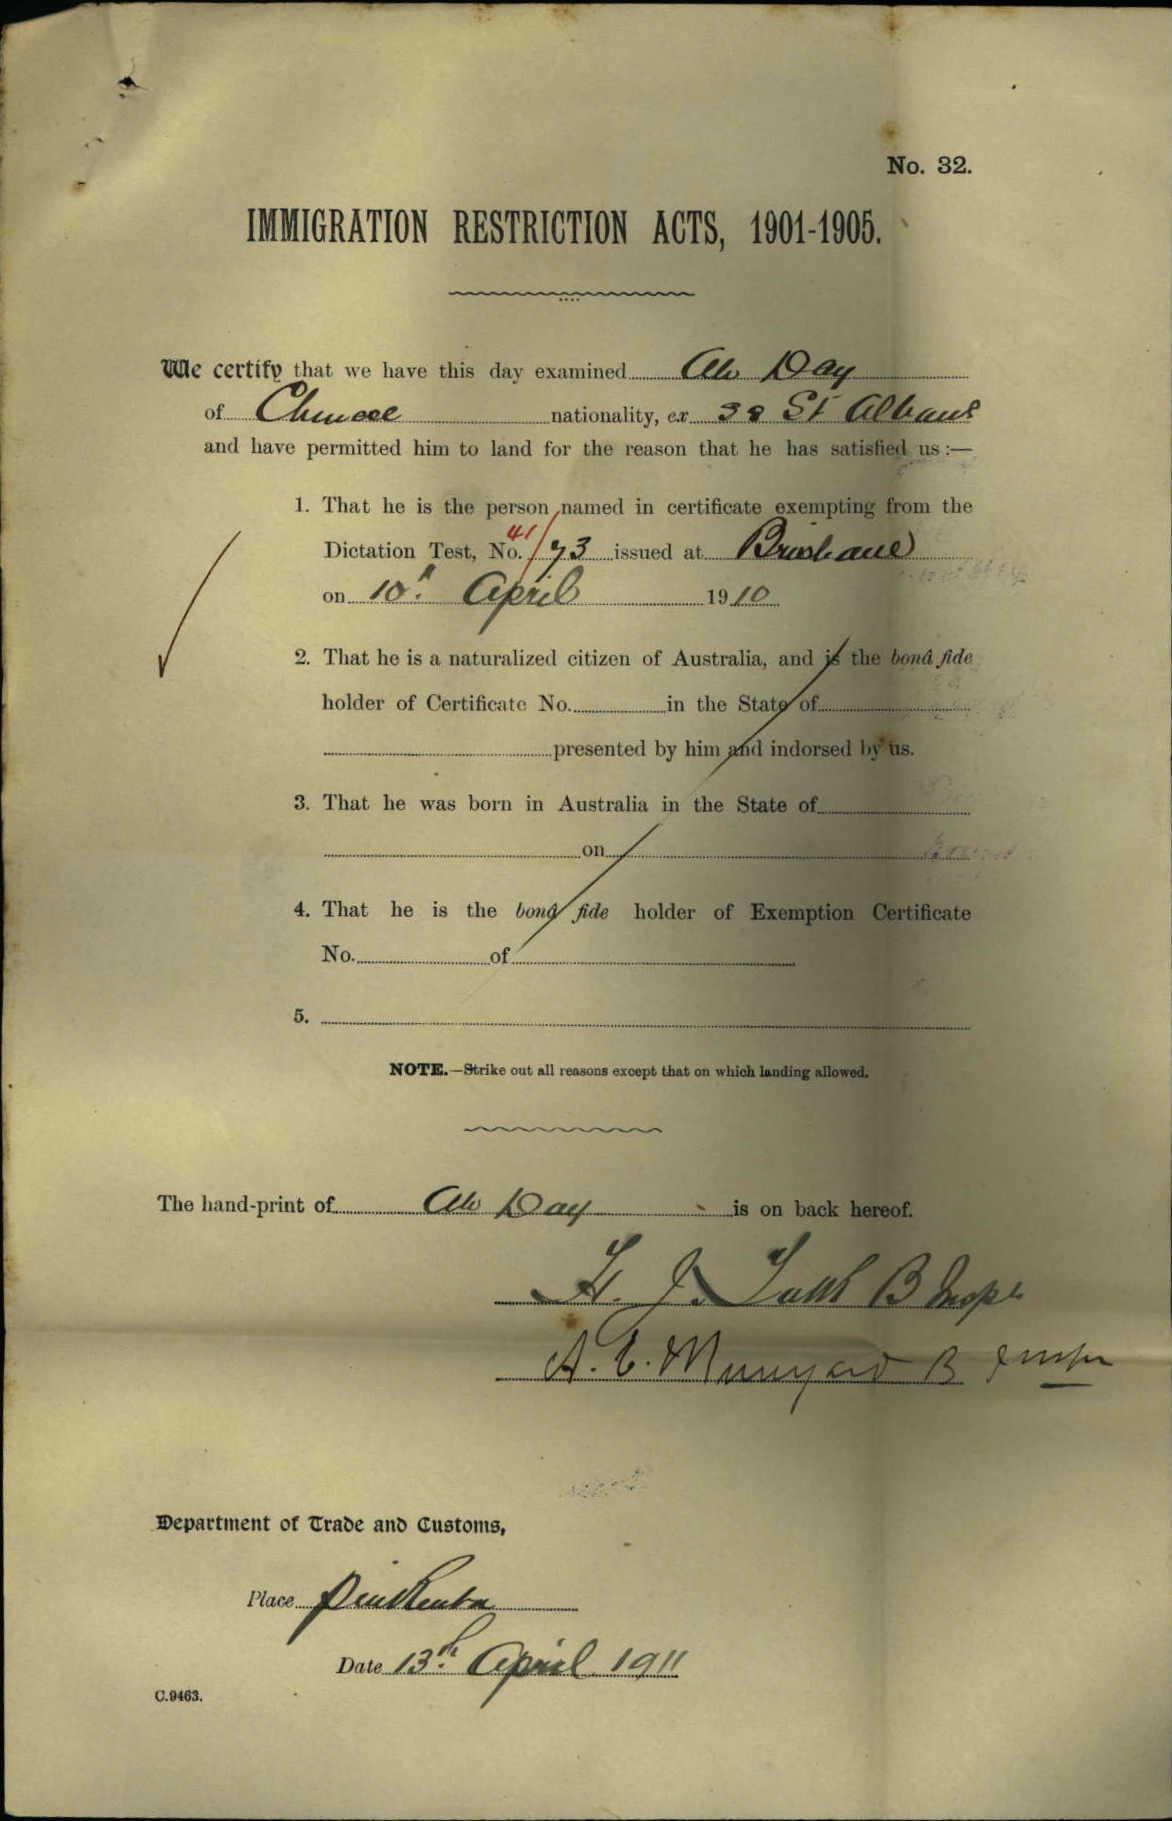 No. 32.
IMMIGRATION RESTRICTION ACTS, 1901-1905.
We certify that we have this day examined Ah Day
of Chinese nationality, ex SS St Albans
and have permitted him to land for the reason that he has satisfied us :—
1. That he is the person named in certificate exempting from the
Dictation Test, No. 41/73 issued at Brisbane
on 10th April 1910
2. That he is a naturalized citizen of Australia, and is the bonâ fide
holder of Certificate No. in the State of
presented by him and indorsed by us.
3. That he was born in Australia in the State of
on
4. That he is the bonâ fide holder of Exemption Certificate
No. of
5.
NOTE.—Strike out all reasons except that on which landing allowed.
The hand-print of Ah Day is on back hereof.
J. B Inspr
A. E. Munyard B Inspr
Department of Trade and Customs,
Place Pinkenba
Date 13th April 1911
C.9463.